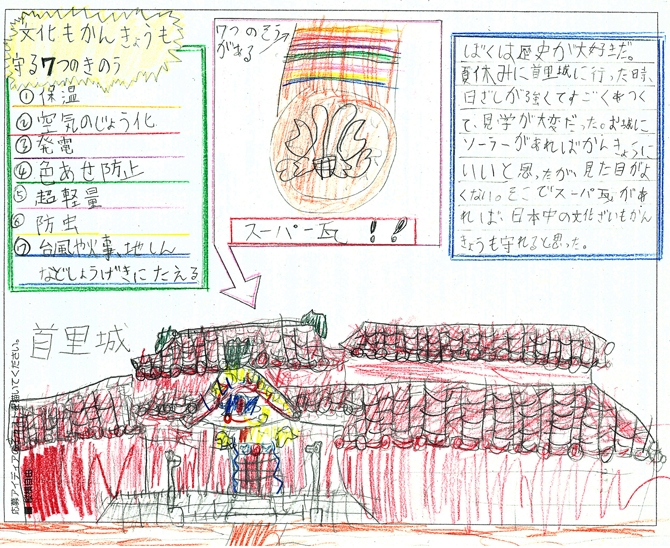 文化もかんきょうも
守る7つのきのう
①保温
②空気のじょう化
③発電
④色あせ防止
⑤超軽量
⑥防虫
⑦台風や火事、地しん
などしょうげきにたえる
7つのそうが
がある
スーパー瓦!!
ぼくは歴史が大好きだ。
夏休みに首里城に行った時、
日ざしが強くてすごくあつく
て、見学が大変だった。お城に
ソーラーがあればかんきょうに
いいと思ったが、見た目がよ
くない。そこでスーパー瓦があ
れば、日本中の文化ざいもかん
きょうも守れると思った。
首里城